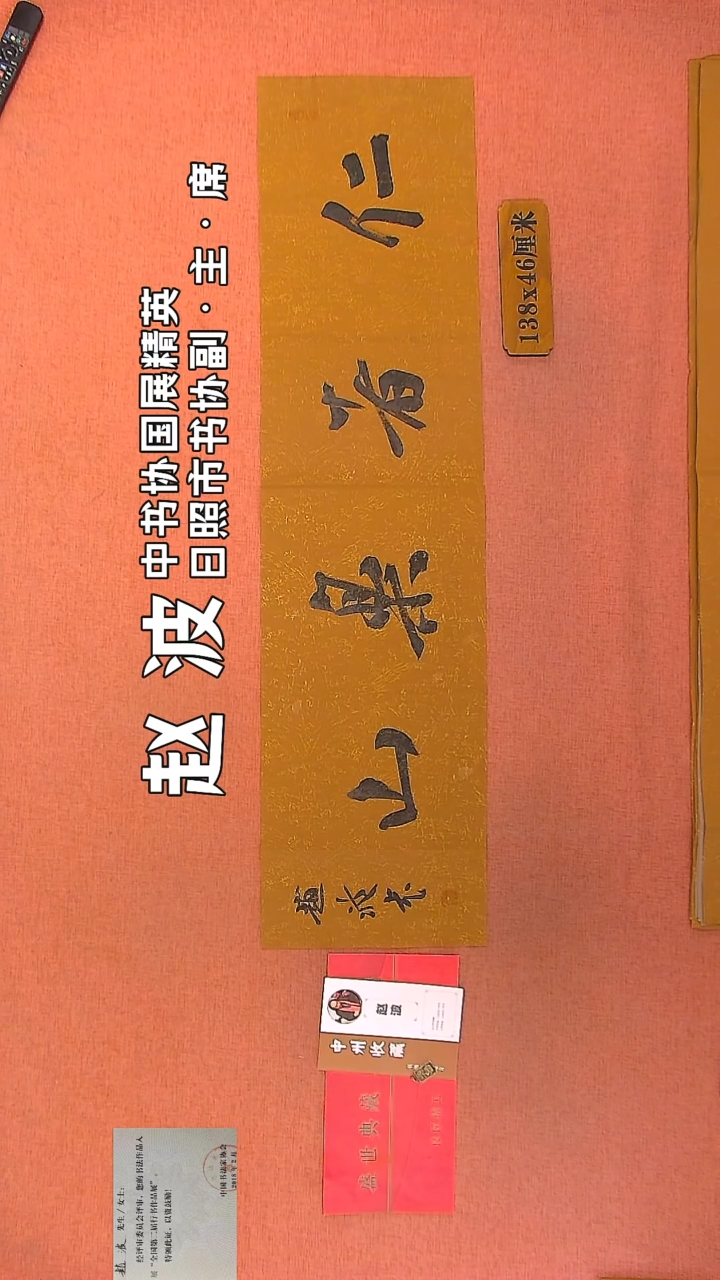 赵波
中书协国展精英
日照市书协副·主·席
仁者樂山
趙波书
138x46厘米
赵波
中州收藏
盛世典藏
趙波 先生/女士:
经评审委员会评审,您的书法作品入
展“全国第二届行书作品展”。
特颁此证,以资鼓励!
中国书法家协会